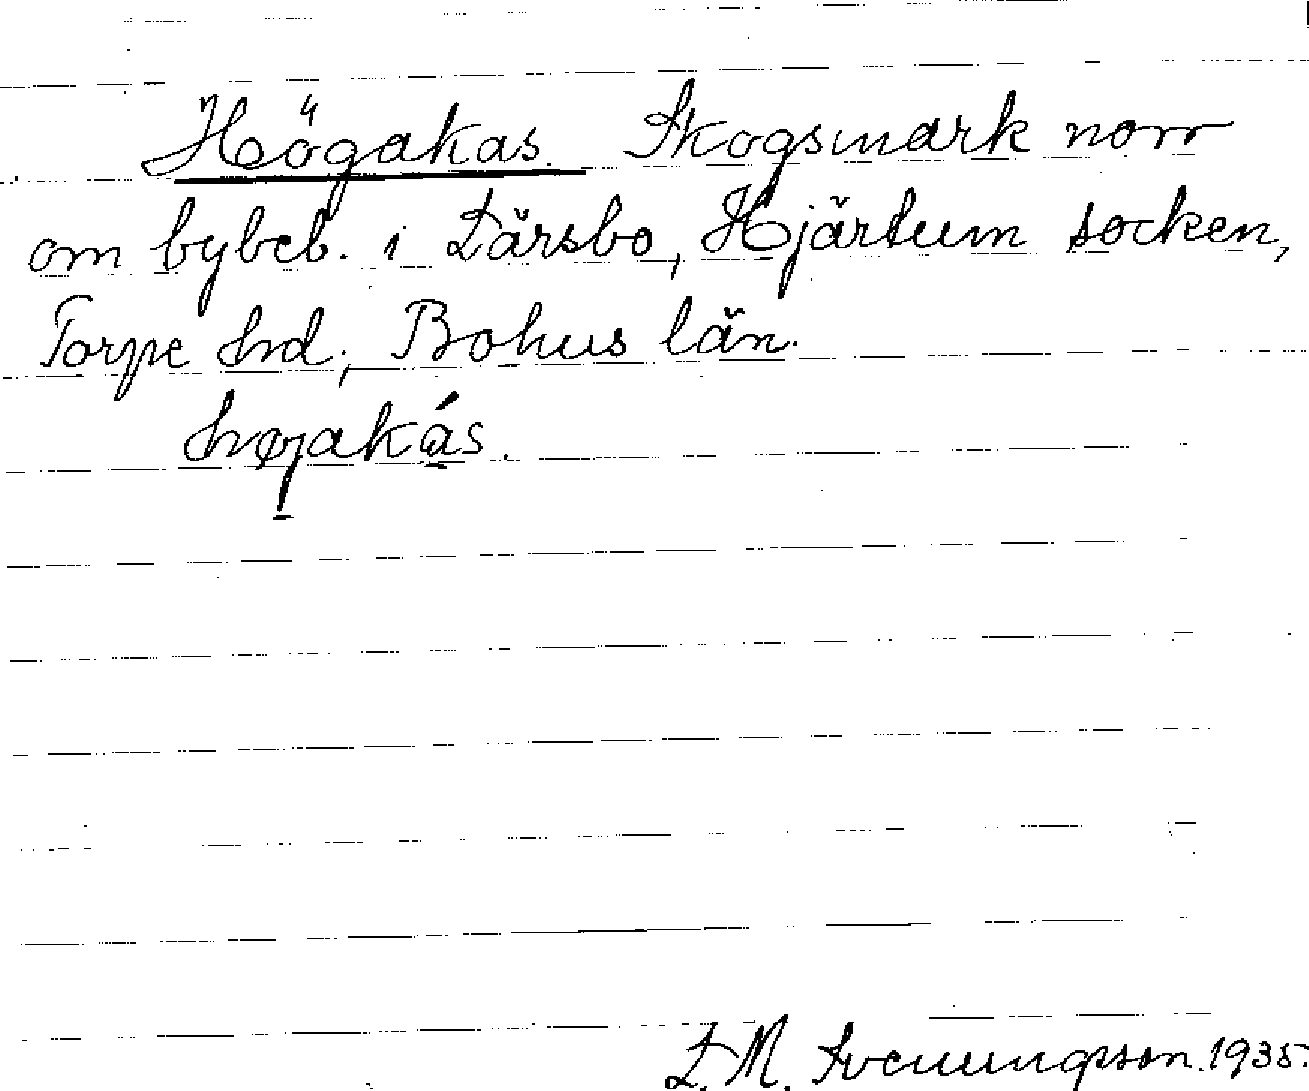 Högakas. Skogsmark norr
om bybeb. i Lärsbo, Hjärtum socken,
Torpe hd; Bohus län.
høgakás.
L. M. Svenungsson. 1935.